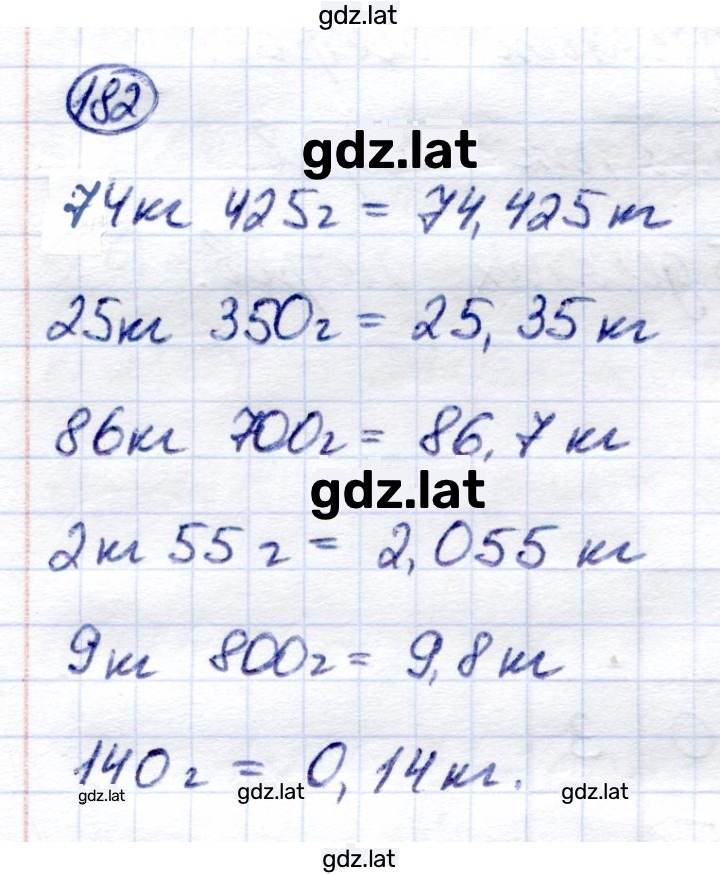 gdz.lat
182
gdz.lat
74кг 425г = 74,425кг
25кг 350г = 25,35 кг
86кг 700г = 86,7 кг
gdz.lat
2кг 55 г = 2,055 кг
9кг 800г = 9,8 кг
140 г = 0,14 кг.
gdz.lat gdz.lat gdz.lat
gdz.lat